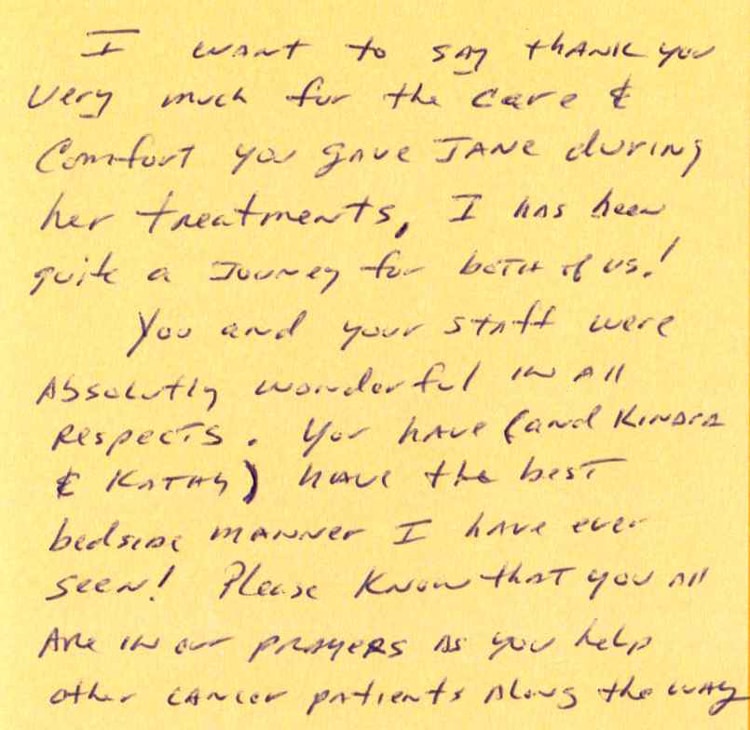 I want to say thank you
very much for the care &
Comfort you gave JANE during
her treatments, I has been
quite a Journey for both of us!
You and your staff were
Absolutly wonderful in all
respects. You have (and Kindra
& Kathy) have the best
bedside manner I have ever
seen! Please Know that you all
Are in our prayers as you help
other cancer patients along the way